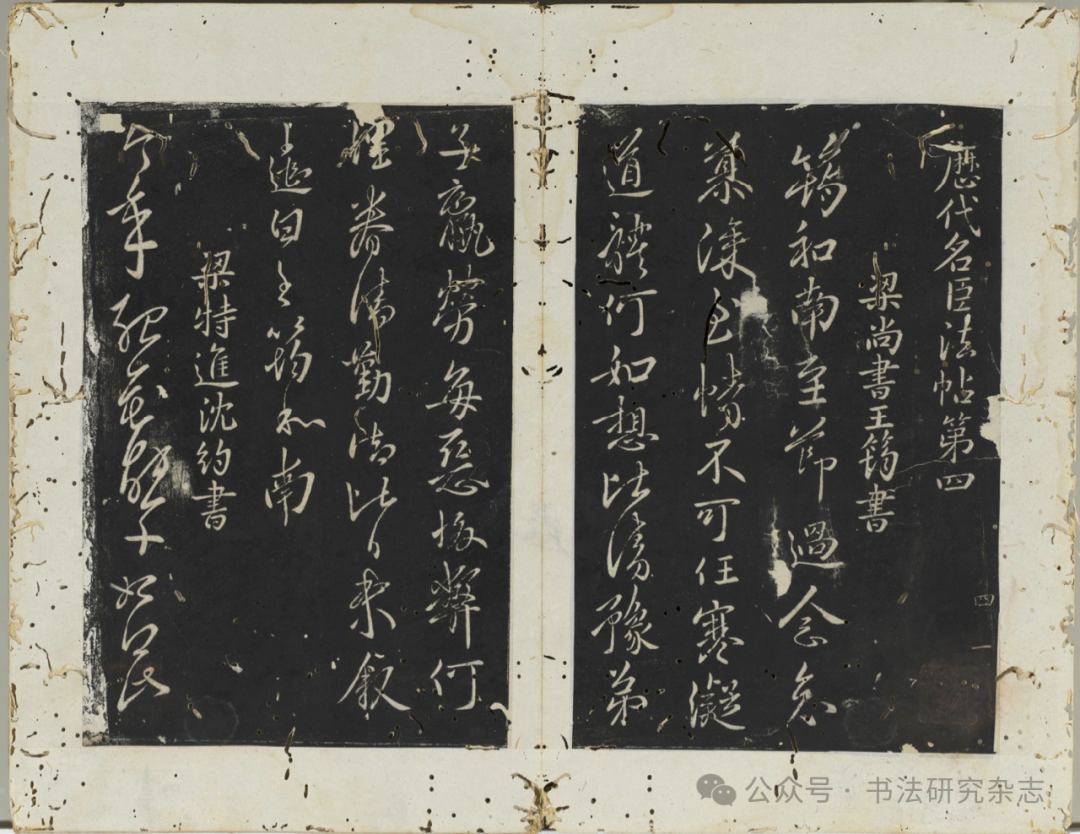 歷代名臣法帖第四
梁尚書王筠書
筠和南至節過念
慕深至情不可任寒凝
道體何如想比清豫弟
子羸勞每惡振弊何
眷清勤比日
白王筠和南
梁特進沈約書
今年
四
一
公众号·书法研究杂志